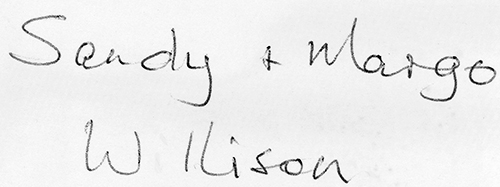 Sandy + Margo
Wilkison